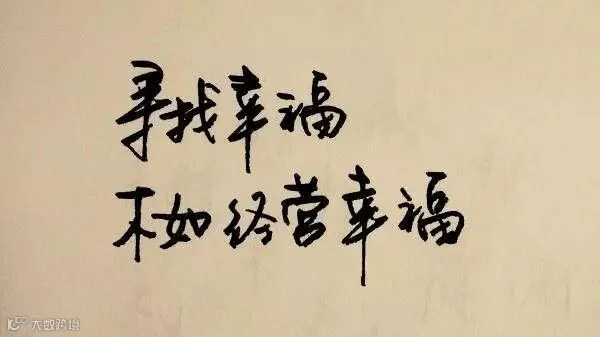 寻找幸福
不如经营幸福
大数跨境